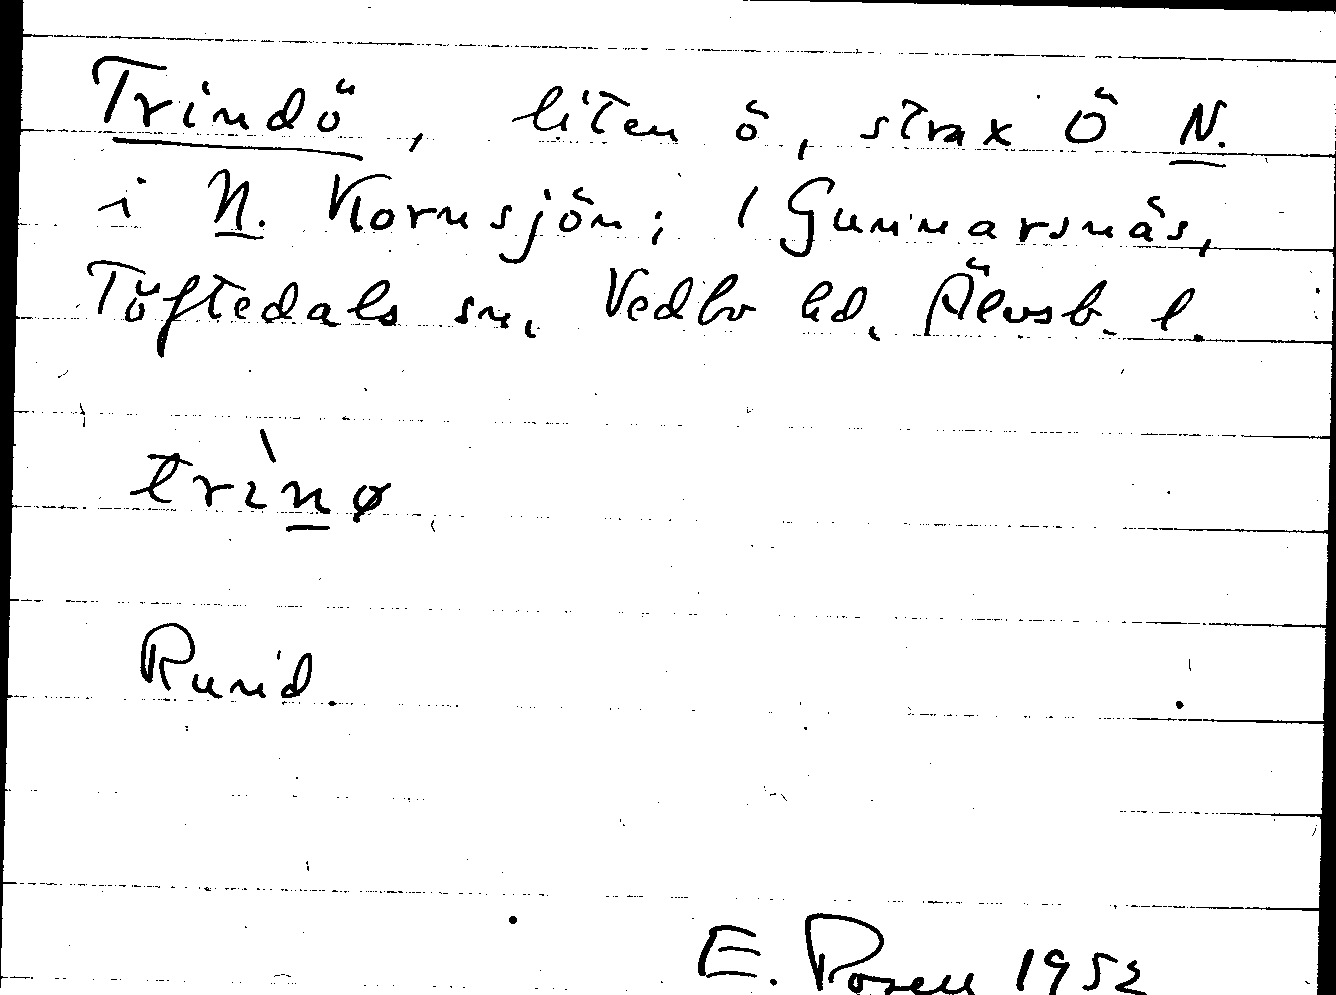 Trindö, liten ö, strax Ö N.
i N. Kornsjön; 1 Gunnarsnäs,
Töftedals sn, Vedbo hd, Älvsb. l.
trìnø
Rund.
E. Rosell 1952